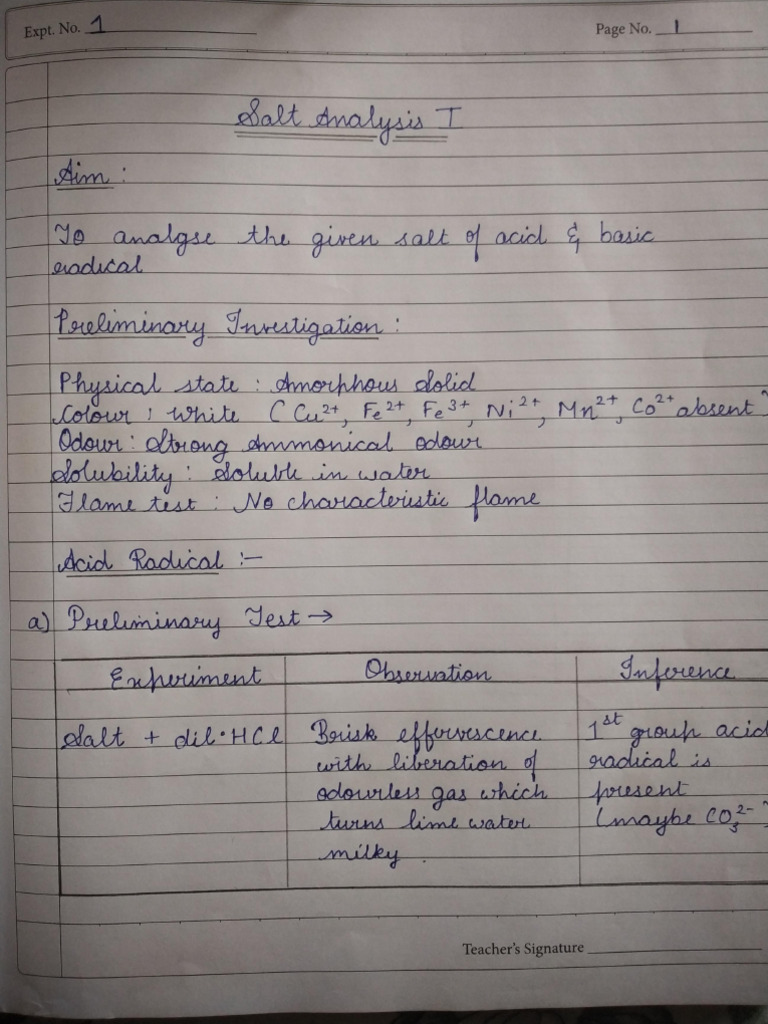 Expt. No. 1
Page No. 1
Salt Analysis I
Aim :
To analyse the given salt of acid & basic
radical
Preliminary Investigation :
Physical state : Amorphous Solid
Colour : White ( Cu²⁺, Fe²⁺, Fe³⁺, Ni²⁺, Mn²⁺, Co²⁺ absent )
Odour : Strong Ammonical odour
Solubility : Soluble in water
Flame test : No characteristic flame
Acid Radical :-
a) Preliminary Test →
Experiment
Observation
Inference
Salt + dil·HCl
Brisk effervescence
with liberation of
odourless gas which
turns lime water
milky.
1st group acid
radical is
present
(maybe CO₃²⁻)
Teacher's Signature